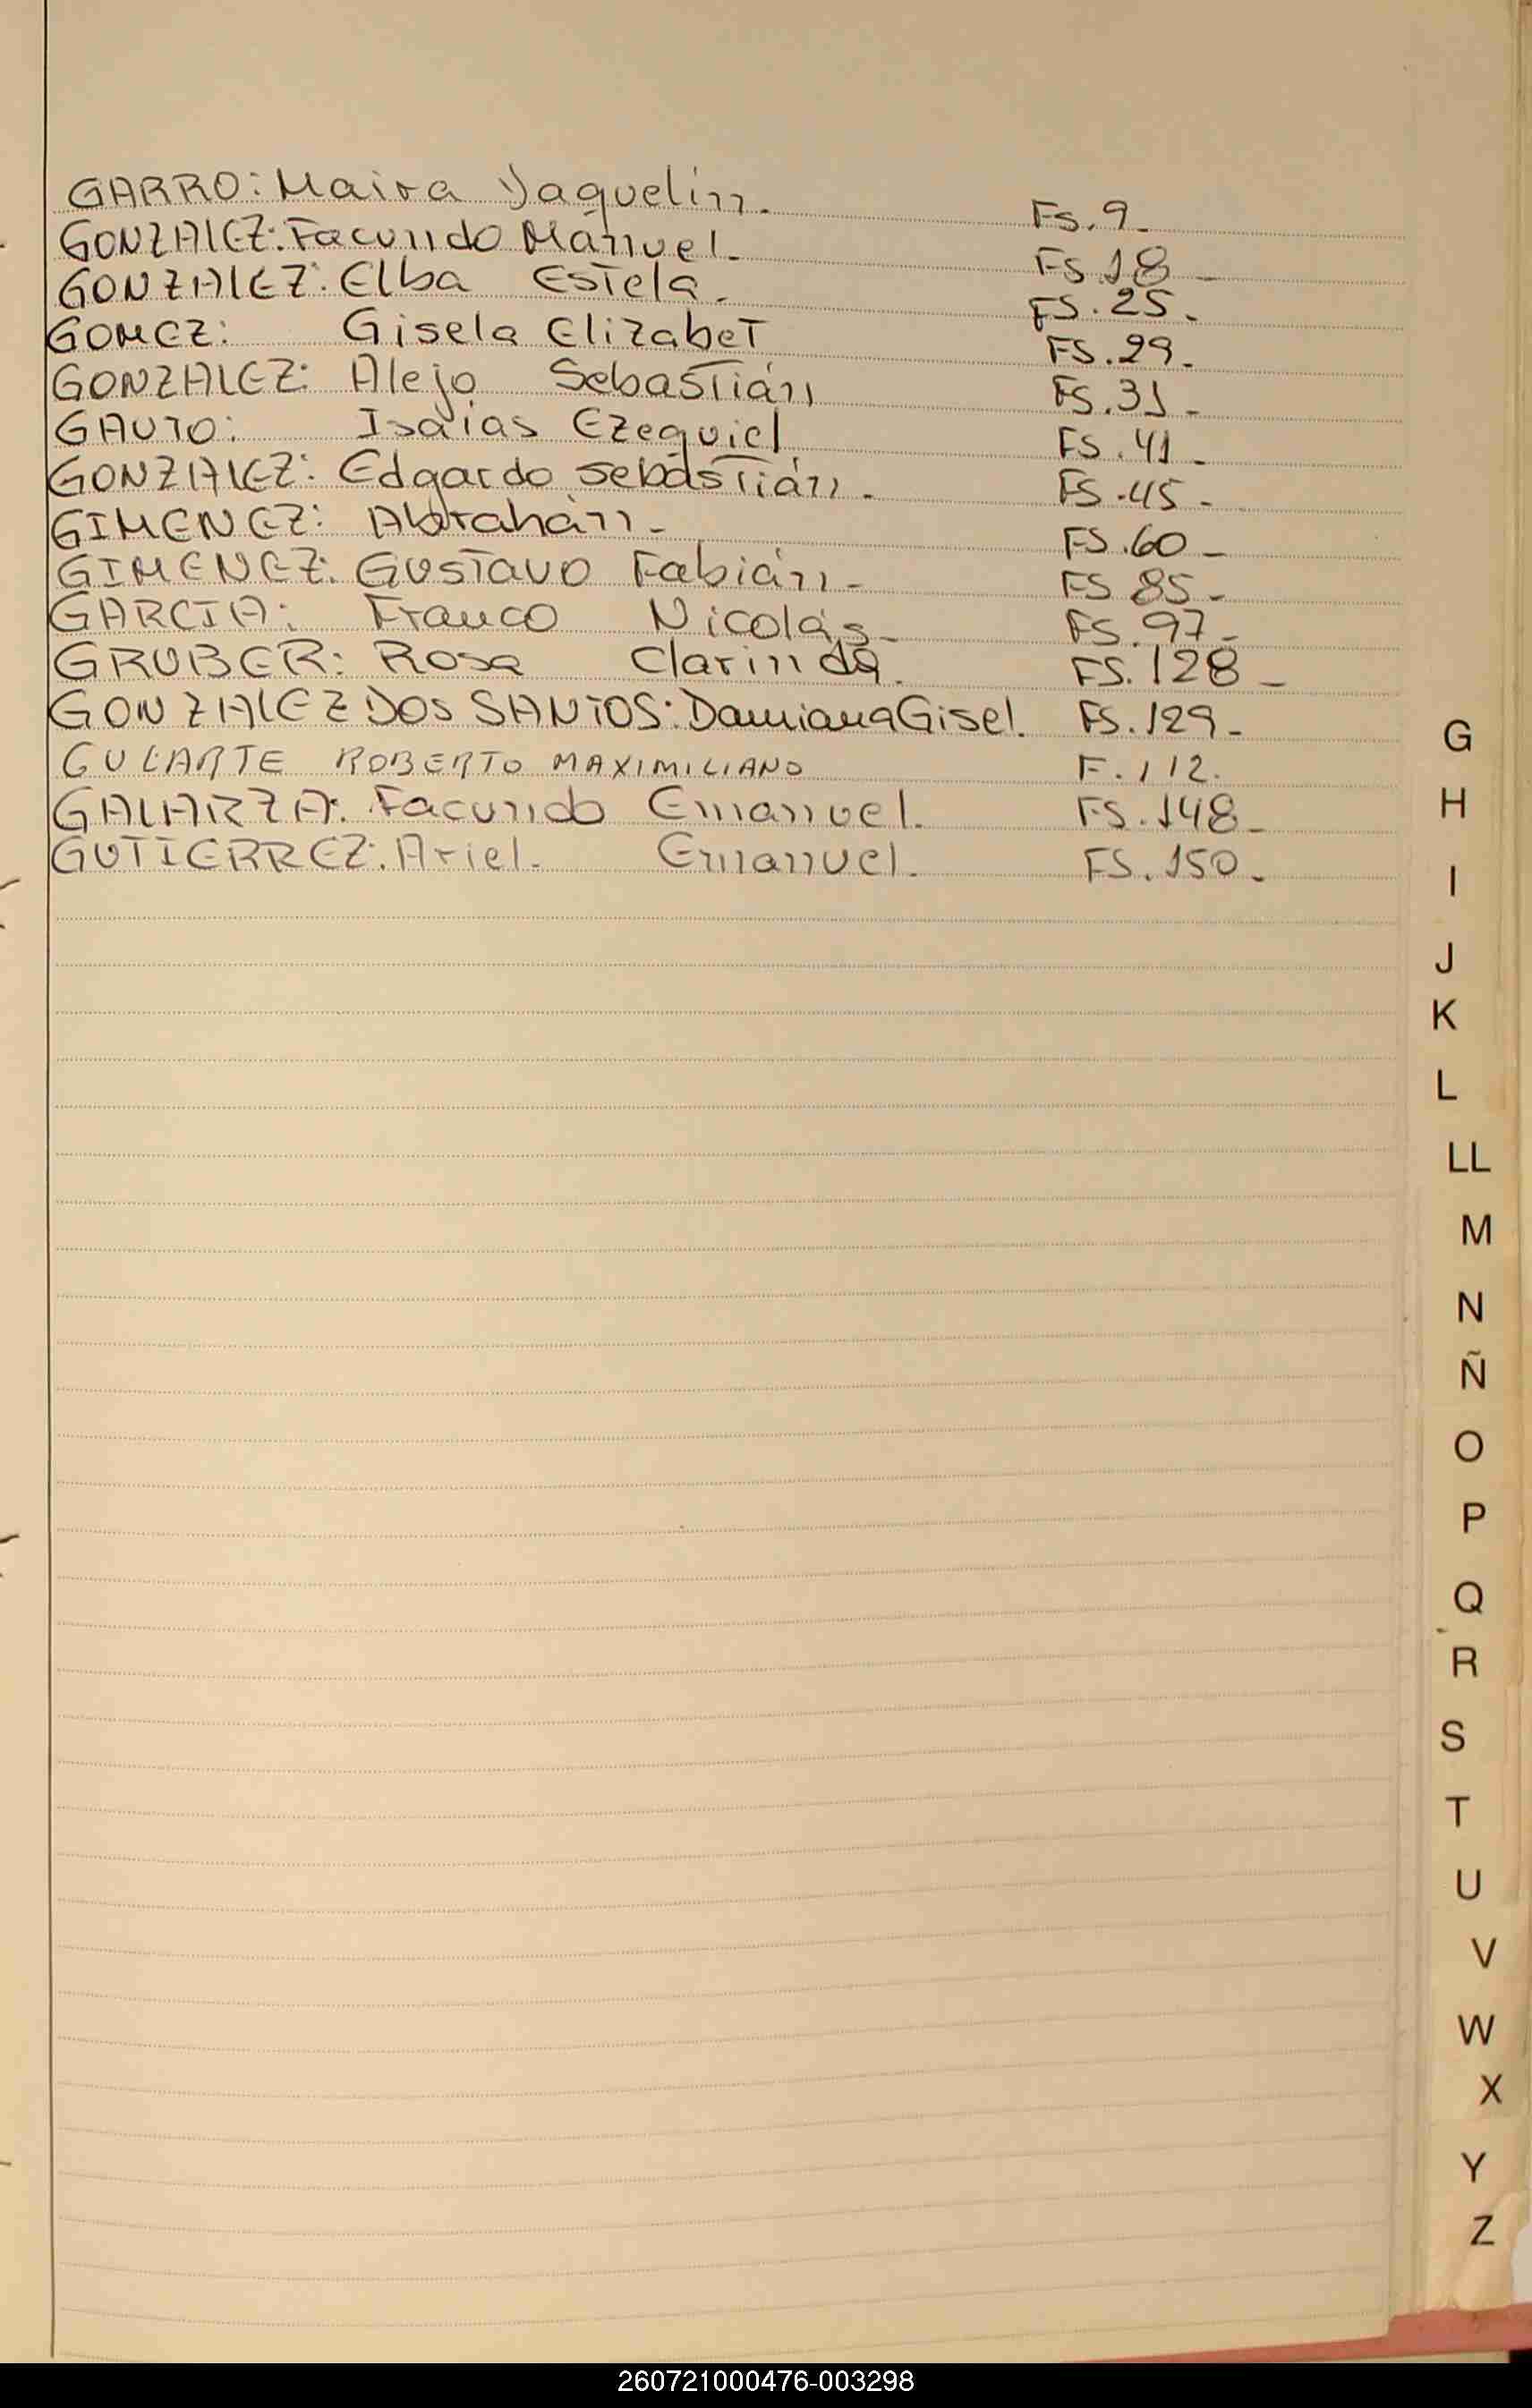 GARRO: Maira Yaquelin. Fs. 9.
GONZALEZ: Facundo Manuel. Fs. 18 -
GONZALEZ: Elba Estela. FS. 25.
GOMEZ: Gisela Elizabet FS. 29.
GONZALEZ: Alejo Sebastián FS. 31 -
GAUTO: Isaias Ezequiel FS. 41 -
GONZALEZ: Edgardo Sebastián. FS. 45 -
GIMENEZ: Abrahán - FS. 60 -
GIMENEZ: Gustavo Fabián - FS 85 -
GARCIA: Franco Nicolás - FS. 97 -
GRUBER: Rosa Clarinda. FS. 128 -
GONZALEZ DOS SANTOS: Damiana Gisel. FS. 129 -
GULARTE ROBERTO MAXIMILIANO F. 112.
GALARZA: Facundo Emanuel. FS. 148 -
GUTIERREZ: Ariel. Emanuel. FS. 150 -
G
H
I
J
K
L
LL
M
N
Ñ
O
P
Q
R
S
T
U
V
W
X
Y
Z
260721000476-003298